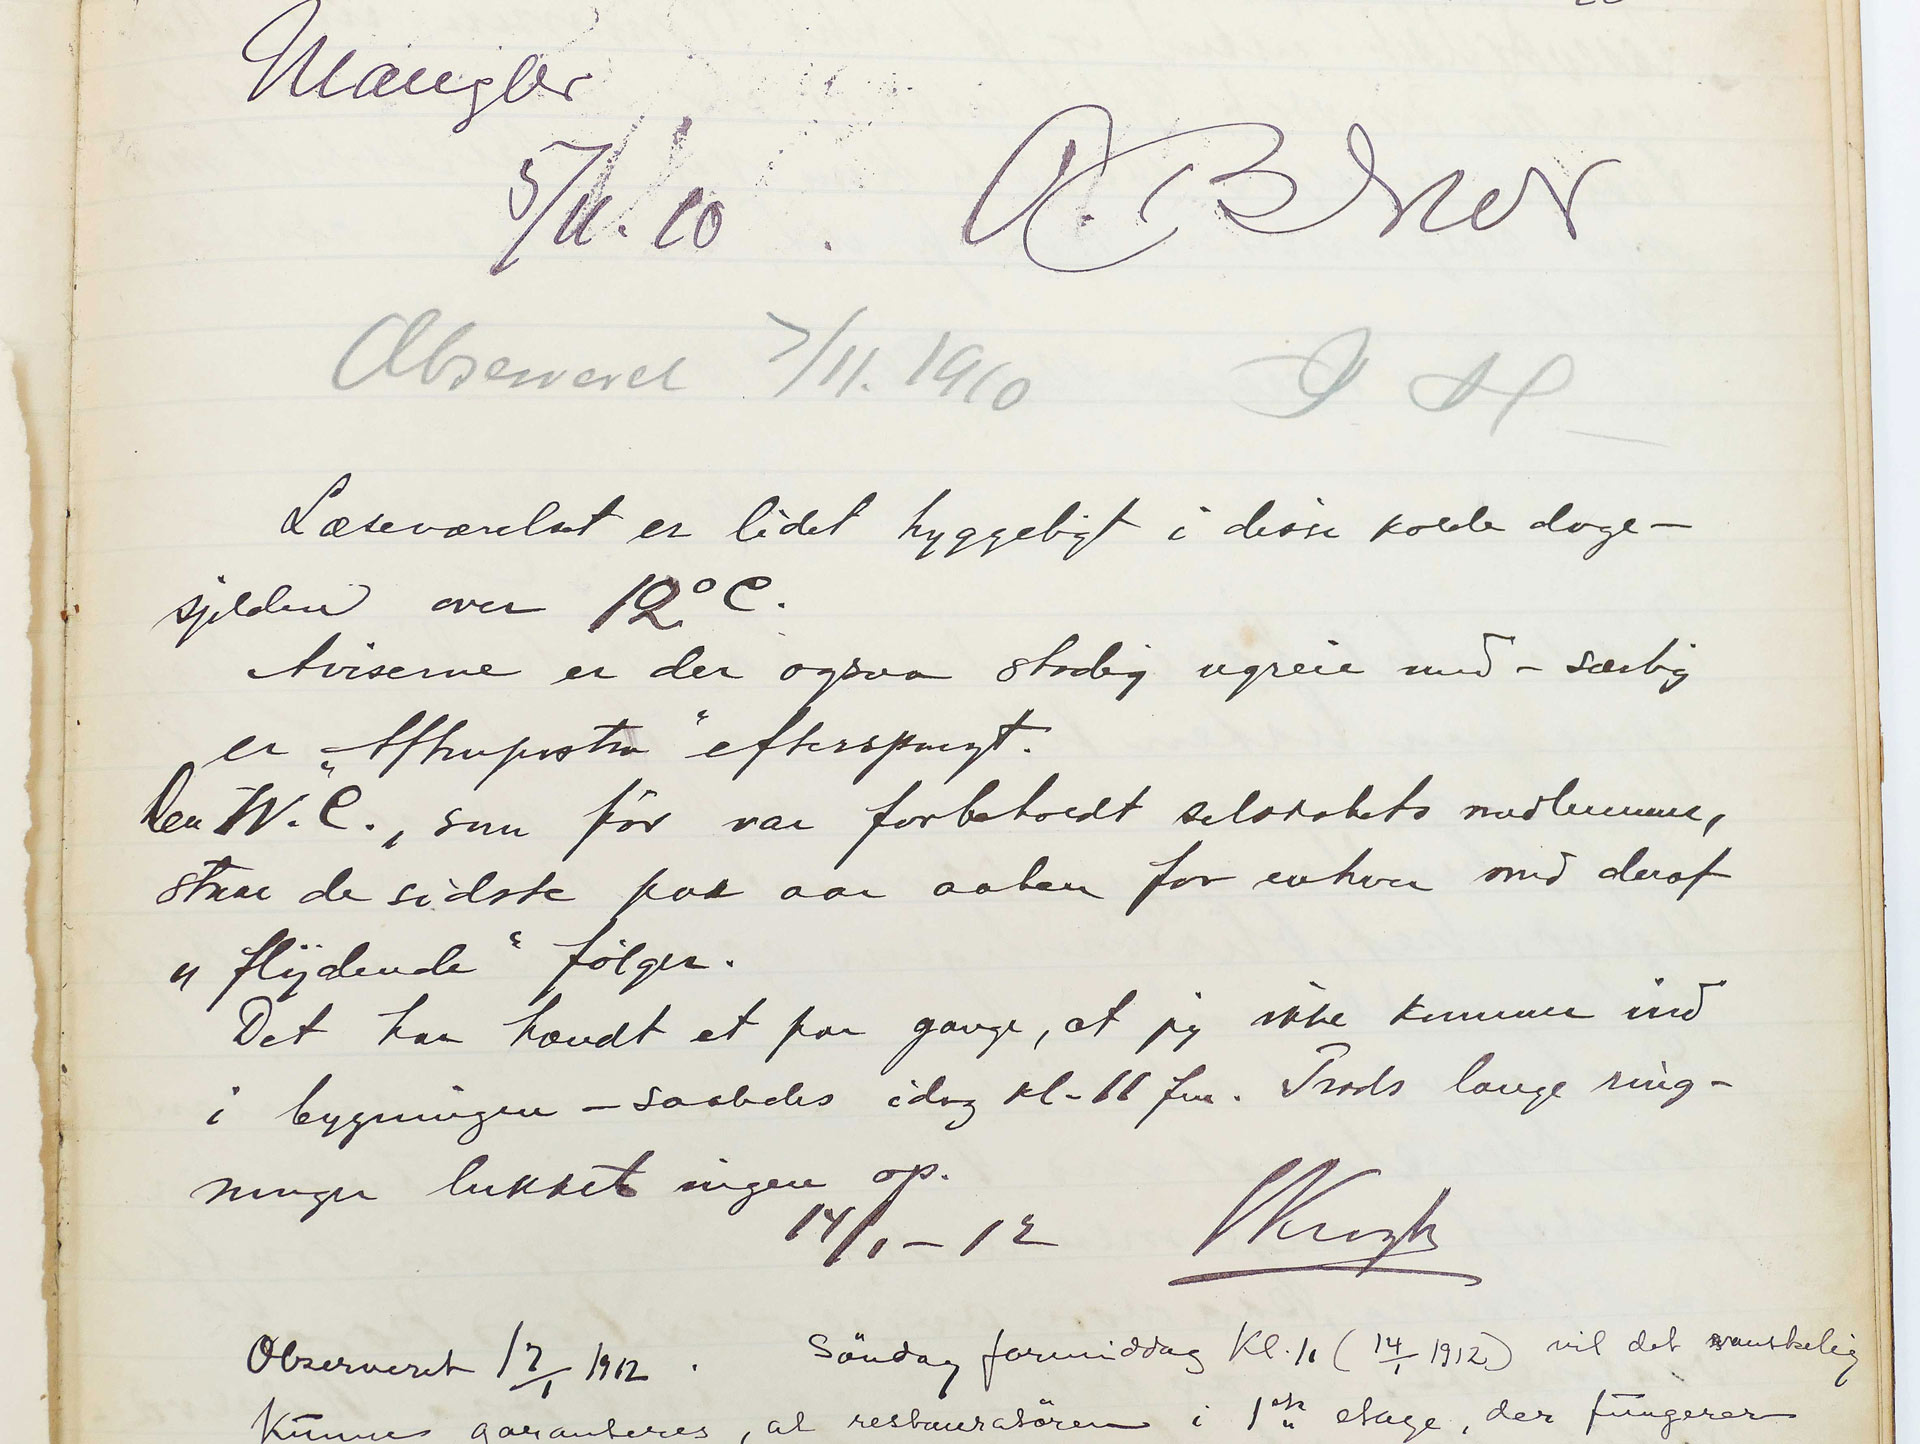 Mangler
5/11. 10.
Observeret 7/11. 1910
Læseværelset er lidet hyggeligt i disse kolde dage –
sjelden over 12° C.
Aviserne er der ogsaa stadig ugreie med – særlig
er „Aftenposten“ efterspurgt.
Den W.C., som för var forbeholdt selskabets medlemmer,
staar de sidste par aar aaben for enhver med deraf
„flydende“ følger.
Det har hændt et par gange, at jeg ikke kommer ind
i bygningen – saaledes idag kl. 11 fm. Trods lange ring-
ninger lukket ingen op.
14/1 – 12 Krogh
Observeret 17/1 1912. Söndag formiddag Kl. 11 (14/1 1912) vil det vanskelig
kunne garanteres, at restauratören i 1ste etage, der fungerer